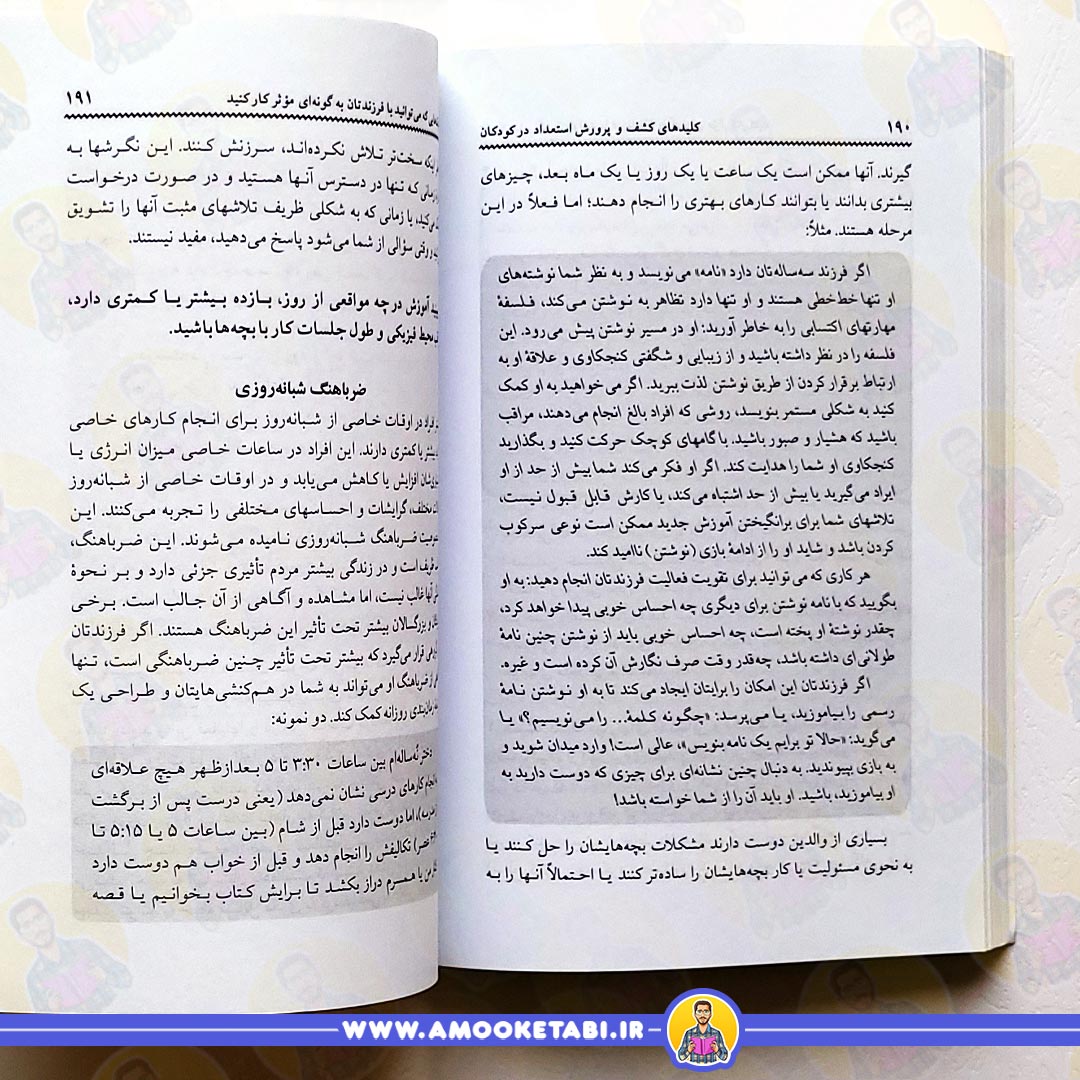 ۱۹۰
کلیدهای کشف و پرورش استعداد در کودکان
گیرند. آنها ممکن است یک ساعت یا یک روز یا یک ماه بعد، چیزهای
بیشتری بدانند یا بتوانند کارهای بهتری را انجام دهند؛ اما فعلاً در این
مرحله هستند. مثلاً:
اگر فرزند سه‌ساله‌تان دارد «نامه» می‌نویسد و به نظر شما نوشته‌های
او تنها خط‌خطی هستند و او تنها دارد تظاهر به نوشتن می‌کند، فلسفهٔ
مهارتهای اکتسابی را به خاطر آورید: او در مسیر نوشتن پیش می‌رود. این
فلسفه را در نظر داشته باشید و از زیبایی و شگفتی کنجکاوی و علاقهٔ او به
ارتباط برقرار کردن از طریق نوشتن لذت ببرید. اگر می‌خواهید به او کمک
کنید به شکلی مستمر بنویسد، روشی که افراد بالغ انجام می‌دهند، مراقب
باشید که هشیار و صبور باشید. با گامهای کوچک حرکت کنید و بگذارید
کنجکاوی او شما را هدایت کند. اگر او فکر می‌کند شما بیش از حد از او
ایراد می‌گیرید یا بیش از حد اشتباه می‌کند، یا کارش قابل قبول نیست،
تلاشهای شما برای برانگیختن آموزش جدید ممکن است نوعی سرکوب
کردن باشد و شاید او را از ادامهٔ بازی (نوشتن) ناامید کند.
هر کاری که می‌توانید برای تقویت فعالیت فرزندتان انجام دهید: به او
بگویید که با نامه نوشتن برای دیگری چه احساس خوبی پیدا خواهد کرد،
چقدر نوشتهٔ او پخته است، چه احساس خوبی باید از نوشتن چنین نامهٔ
طولانی‌ای داشته باشد، چه‌قدر وقت صرف نگارش آن کرده است و غیره.
اگر فرزندتان این امکان را برایتان ایجاد می‌کند تا به او نوشتن نامهٔ
رسمی را بیاموزید، یا می‌پرسد: «چگونه کلمهٔ... را می‌نویسیم؟» یا
می‌گوید: «حالا تو برایم یک نامه بنویس»، عالی است! وارد میدان شوید و
به بازی بپیوندید. به دنبال چنین نشانه‌ای برای چیزی که دوست دارید به
او بیاموزید، باشید. او باید آن را از شما خواسته باشد!
بسیاری از والدین دوست دارند مشکلات بچه‌هایشان را حل کنند یا
به نحوی مسئولیت یا کار بچه‌هایشان را ساده‌تر کنند یا احتمالاً آنها را به
که می‌توانید با فرزندتان به گونه‌ای مؤثر کار کنید
۱۹۱
اینکه سخت‌تر تلاش نکرده‌اند، سرزنش کنند. این نگرشها به
زمانی که تنها در دسترس آنها هستید و در صورت درخواست
می‌کنید، یا زمانی که به شکلی ظریف تلاشهای مثبت آنها را تشویق
و وقتی سؤالی از شما می‌شود پاسخ می‌دهید، مفید نیستند.
آموزش در چه مواقعی از روز، بازده بیشتر یا کمتری دارد،
محیط فیزیکی و طول جلسات کار با بچه‌ها باشید.
ضرباهنگ شبانه‌روزی
افراد در اوقات خاصی از شبانه‌روز برای انجام کارهای خاصی
بیشتر یا کمتری دارند. این افراد در ساعات خاصی میزان انرژی یا
افزایش یا کاهش می‌یابد و در اوقات خاصی از شبانه‌روز
مختلف، گرایشات و احساسهای مختلفی را تجربه می‌کنند. این
ضرباهنگ شبانه‌روزی نامیده می‌شوند. این ضرباهنگ،
ظریف است و در زندگی بیشتر مردم تأثیری جزئی دارد و بر نحوهٔ
آنها غالب نیست، اما مشاهده و آگاهی از آن جالب است. برخی
و بزرگسالان بیشتر تحت تأثیر این ضرباهنگ هستند. اگر فرزندتان
قرار می‌گیرد که بیشتر تحت تأثیر چنین ضرباهنگی است، تنها
از ضرباهنگ او می‌تواند به شما در هم‌کنشی‌هایتان و طراحی یک
زمان‌بندی روزانه کمک کند. دو نمونه:
دختر نُه‌ساله‌ام بین ساعات ۳:۳۰ تا ۵ بعدازظهر هیچ علاقه‌ای
انجام کارهای درسی نشان نمی‌دهد (یعنی درست پس از برگشت
اما دوست دارد قبل از شام (بین ساعات ۵ یا ۵:۱۵ تا
عصر) تکالیفش را انجام دهد و قبل از خواب هم دوست دارد
من یا همسرم دراز بکشد تا برایش کتاب بخوانیم یا قصه
WWW.AMOOKETABI.IR